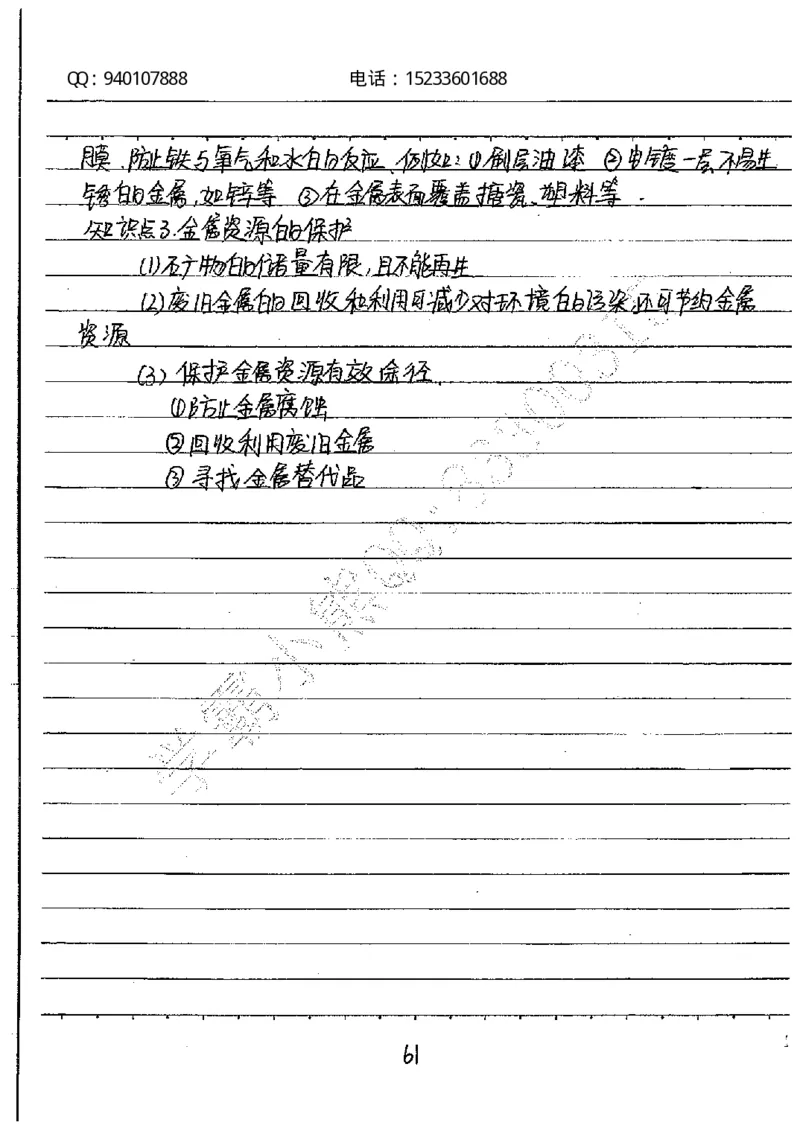 QQ：940107888 电话：15233601688
膜、防止铁与氧气和水的反应、例如：①刷层油漆 ②电镀一层不易生
锈的金属，如锌等 ③在金属表面覆盖搪瓷、塑料等.
知识点3.金属资源的保护
(1)矿物的储量有限，且不能再生
(2)废旧金属的回收和利用可减少对环境的污染，还可节约金属
资源
(3)保护金属资源有效途径
①防止金属腐蚀
②回收利用废旧金属
③寻找金属替代品
学霸小熊QQ:
61